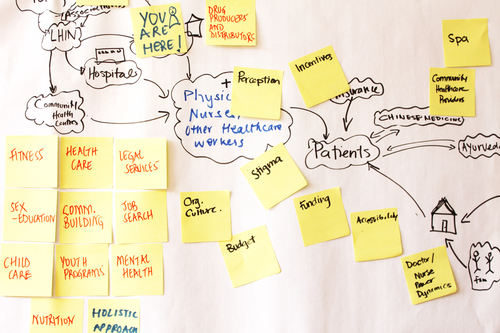 Associations
LHIN
YOU
ARE
HERE!
DRUG
PRODUCERS
AND
DISTRIBUTORS
Spa
Hospitals
Perception
Incentives
Community
Healthcare
Providers
Community
Health
Centres
Nurse,
other Healthcare
workers
CHINESE MEDICINE
Patients
FITNESS
HEALTH
CARE
LEGAL
SERVICES
Stigma
SEX
-EDUCATION
COMM.
BUILDING
JOB
SEARCH
Org.
Culture.
Funding
Accessibility
Budget
CHILD
CARE
YOUTH
PROGRAMS
MENTAL
HEALTH
Doctor/
Nurse
Power
Dynamics
NUTRITION
HOLISTIC
APPROACH